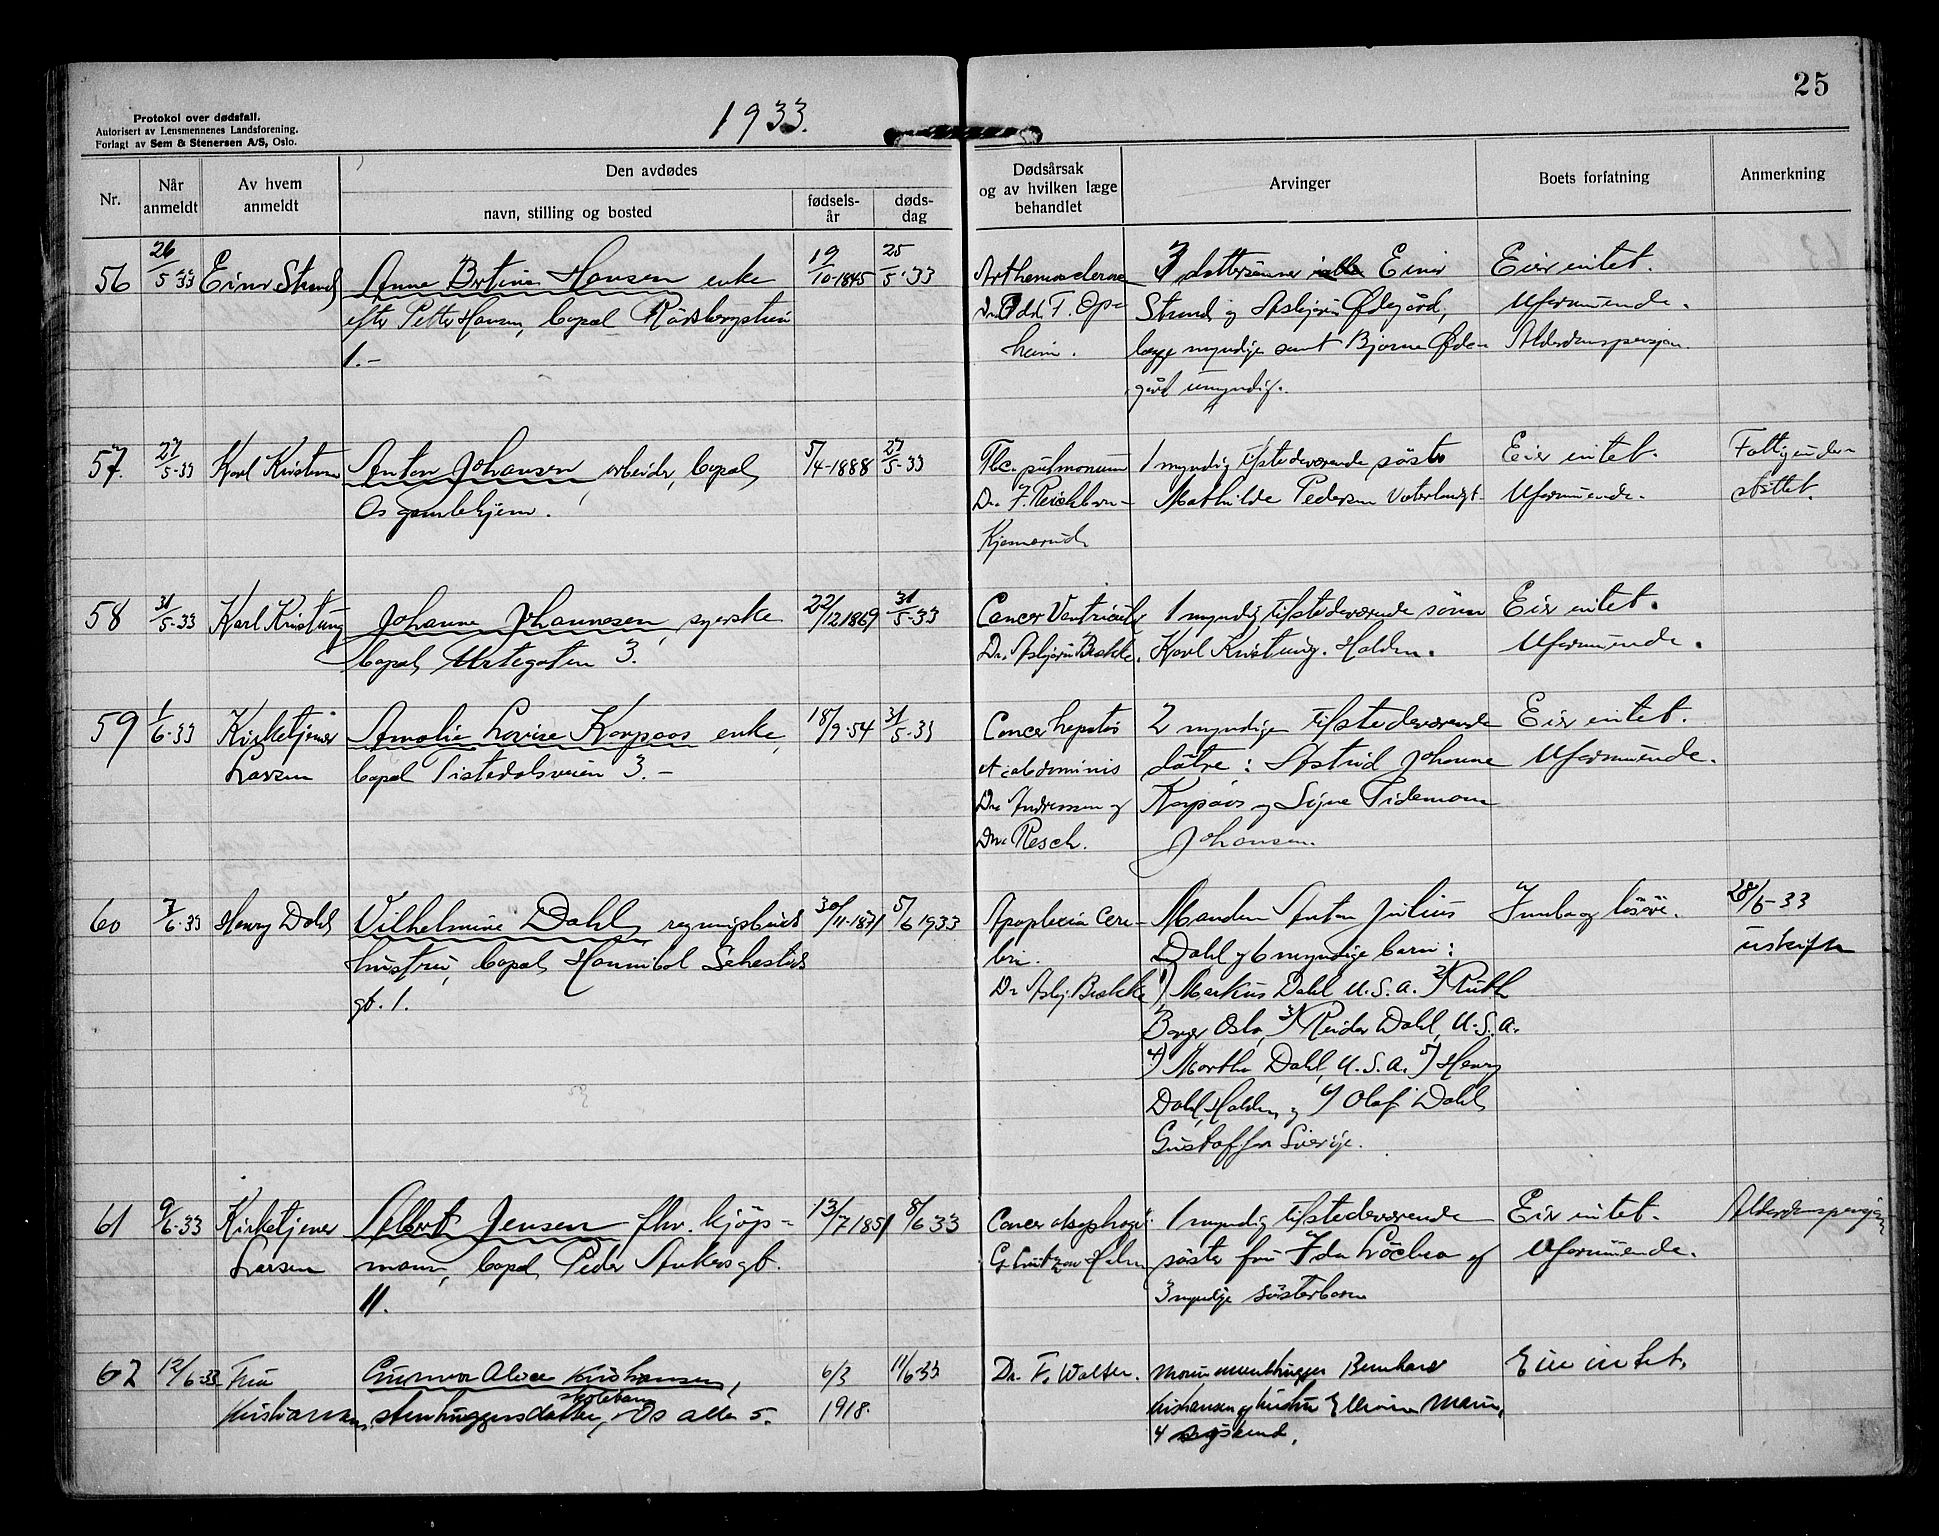 25
Protokol over dødsfall.
Autorisert av Lensmennenes Landsforening.
Forlagt av Sem & Stenersen A/S, Oslo.
1933.
Nr.
Når anmeldt
Av hvem anmeldt
Den avdødes
navn, stilling og bosted
fødselsår
dødsdag
Dødsårsak og av hvilken læge behandlet
Arvinger
Boets forfatning
Anmerkning
56
26/5-33
Einar Strand
Anne Bertine Hansen enke
efter Petter Hansen, bopæl
1.-
19/10-1845
25/5-33
Dr. Odd F. Opsheim.
3 dattersønner Einar
Strand og Asbjørn Ødegård,
begge myndige samt Bjarne Ødegård umyndig.
Eier intet.
Uformuende.
Alderdomspensjon
57.
27/5-33
Karl Kristensen
Anton Johansen, arbeider, bopæl
Os gamlehjem.
5/4-1888
27/5-33
Tbc. pulmonum
Dr. F. Reichborn-
Kjennerud
1 myndig tilstedeværende søster
Mathilde Pedersen
Eier intet.
Uformuende.
Fattigunderstøttet.
58
31/5-33
Karl Kristung
Johanne Johannesen, syerske
bopæl Urtegaten 3.
22/12 1869
31/5-33
Cancer Ventriculi
Dr. Asbjørn Bakke.
1 myndig tilstedeværende sønn
Karl Kristung. Halden.
Eier intet.
Uformuende.
59
1/6-33
Kirketjener
Larsen
Amalie Lovise Korpaas enke,
bopæl Tistedalsveien 3.-
18/9-54
31/5-33
Cancer hepatis
et abdominis
Dr. Andressen og
Dr. Resch.
2 myndige tilstedeværende
døtre: Astrid Johanne
Korpaas og Signe Tidemann
Johansen.
Eier intet.
Uformuende.
60
7/6-33
Henry Dahl
Vilhelmine Dahl,
hustru, bopæl Hannibal Sehesteds
gt. 1.
30/11-1871
5/6 1933
Apoplexia cerebri.
Dr. Asbj. Bakke
Manden Anton Julius
Dahl og 6 myndige barn:
1) Markus Dahl U.S.A. 2) Ruth
Borger Oslo, 3) Reidar Dahl, U.S.A.
4) Martha Dahl, U.S.A. 5) Henry
Dahl, Halden, og 6) Olaf Dahl,
Gustafsfors Sverige.
Innbo og løsøre.
28/6-33
uskifte
61
9/6-33
Kirketjener
Larsen
Albert Jensen fhv. kjøpmann, bopæl Peder Ankersgt.
11.
13/7 1851
8/6 33
Cancer oesophagi
1 myndig tilstedeværende
søster fru Ida og
3 myndige søsterbarn
Eier intet.
Uformuende.
Alderdomspensjon
62
12/6-33
Fru
Kristiansen
Gunvor Alice Kristiansen,
skolebarn
stenhuggersdatter, Os alle 5.
6/3
1918.
11/6-33
Dr. F. Walter.
Monumenthugger Bernhard
Kristiansen og hustru Marie,
4 søskend.
Eier intet.